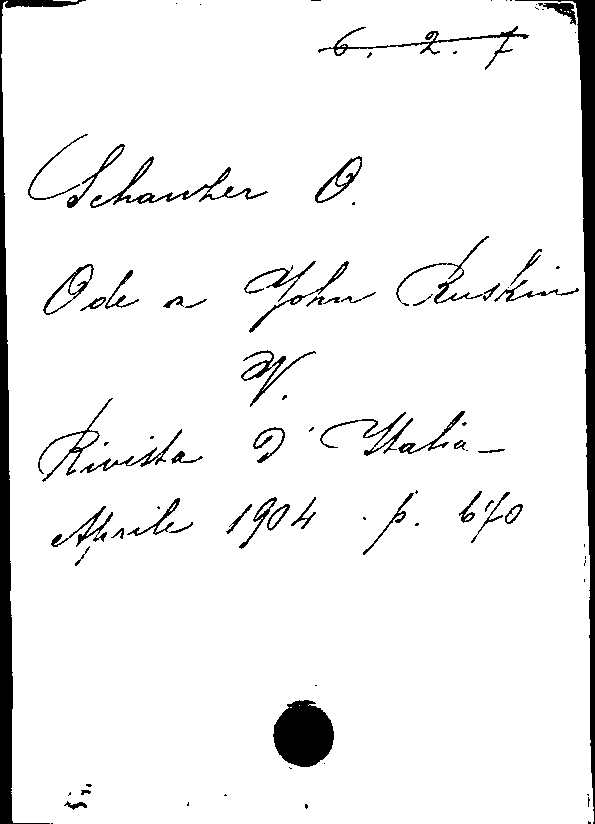 6. 2. 7
Schanzer O.
Ode a John Ruskin
V.
Rivista D'Italia -
Aprile 1904 . p. 670